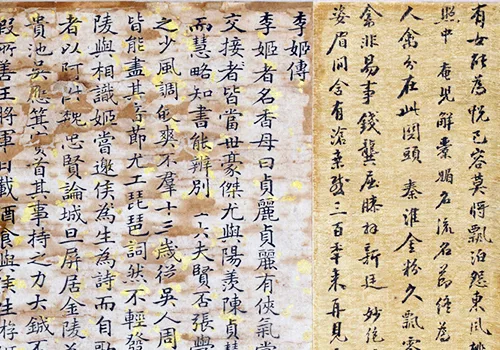 有女能為悅己容莫將飄泊怨東風
照中 奄兒解橐媚名流名篇終為
人禽分在此関頭 秦淮金粉久飄零
禽非易事錢龔屈膝拜新廷 妙絕
姿眉間含有滄桑感三百年來再見
李姬傳
李姬者名香母曰貞麗貞麗有俠氣嘗
交接者皆當世豪傑尤與陽羨陳貞慧
而慧略知書能辨別士大夫賢否張學
之少風調皎爽不羣十三歲從吳人周
皆能盡其音節尤工琵琶詞然不輕發
陵與相識姬嘗邀侯為生為詩而自歌
者以阿附魏忠賢論城旦屏居金陵為
貴池吳應箕實首其事持之力大鋮不
假所善王將軍日載酒食與侯生游